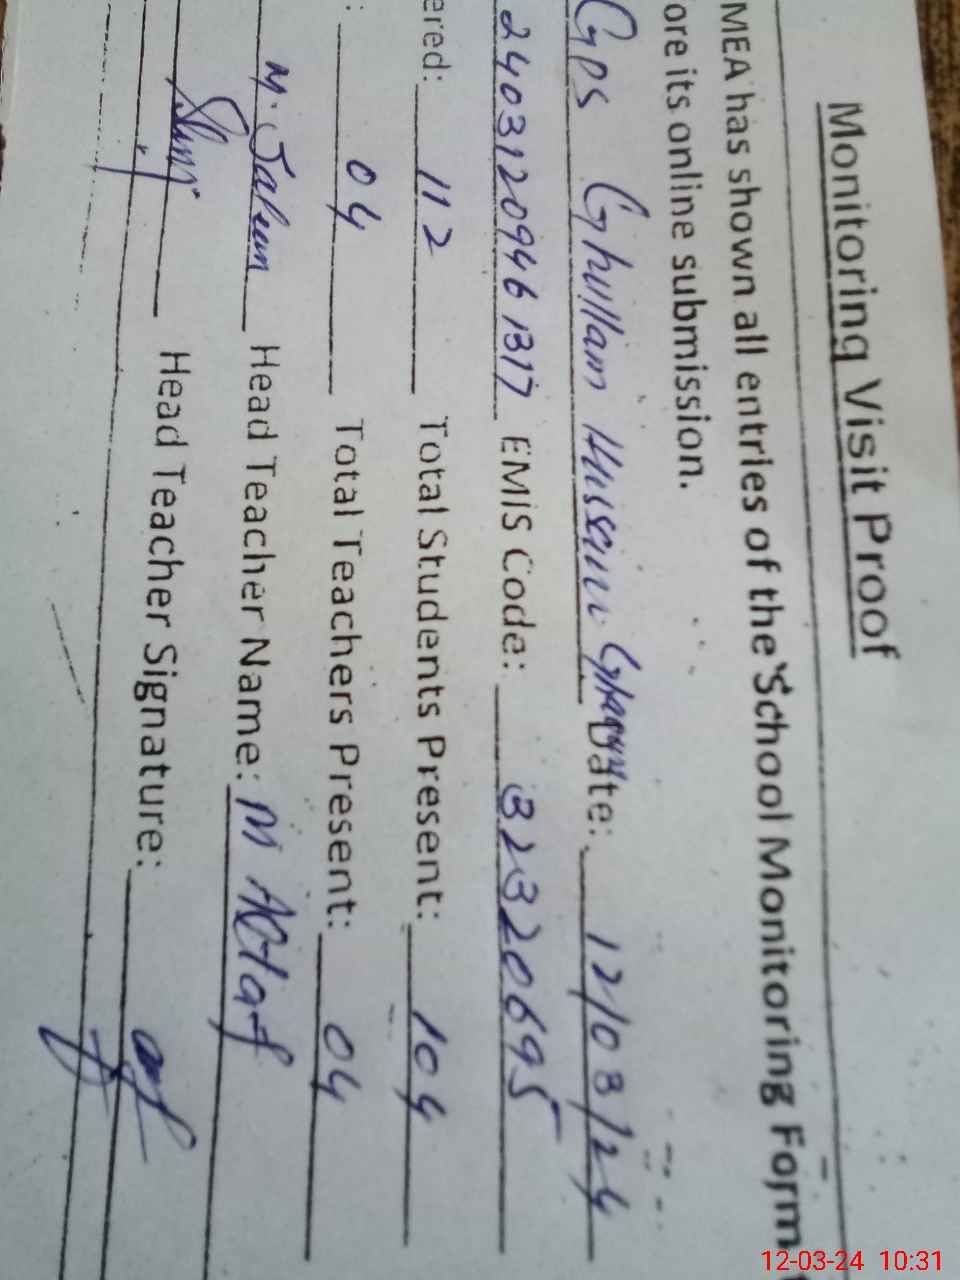 Monitoring Visit Proof
MEA has shown all entries of the School Monitoring Form
ore its online submission.
Gps Ghullam Hussain Date: 12/03/24
240312094461317 EMIS Code: 32320695
ered: 112 Total Students Present: 104
: 04 Total Teachers Present: 04
M. Saleem Head Teacher Name: M Altaf
Head Teacher Signature:
12-03-24 10:31